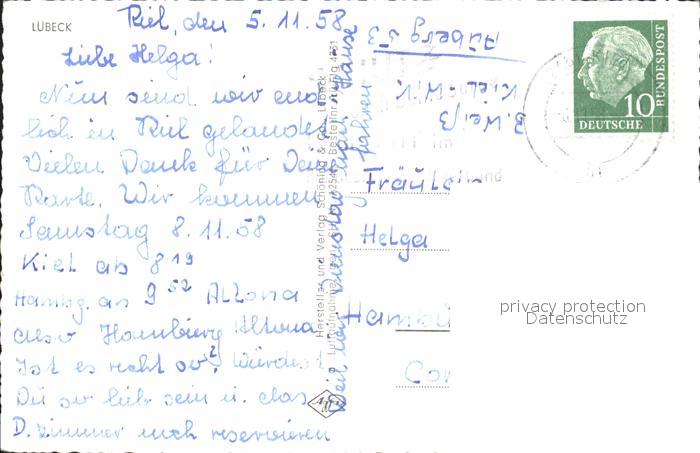 LÜBECK
Kiel, den 5. 11. 58
Liebe Helga!
Nun sind wir end
lich in Kiel gelandet
Vielen Dank für Deine
Karte. Wir kommen
Samstag 8. 11. 58
Kiel ab 8 19
Hambg. an 9 52 Altona
also Hamburg Altona
Ist es recht so? Würdest
Du so lieb sein u. das
D. Zimmer noch reservieren
weil wir Dienstag nach Hause
fahren
Hersteller und Verlag Schöning & Co., Lübeck
B. Weiß
Kiel - Wik
53
Fräulein
Helga
Hambu
DEUTSCHE
BUNDESPOST
10
privacy protection
Datenschutz